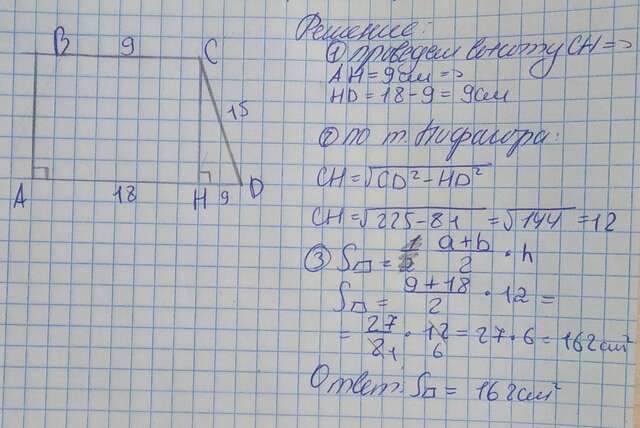 B 9 C
15
A 18 H 9 D
Решение:
① проведем высоту CH =>
AH = 9см =>
HD = 18 - 9 = 9см
② по т. Пифагора:
CH = √CD² - HD²
CH = √225 - 81 = √144 = 12
③ S▱ = a+b/2 · h
S▱ = 9+18/2 · 12 =
= 27/2₁ · 12 6 = 27 · 6 = 162см²
Ответ: S▱ = 162см²